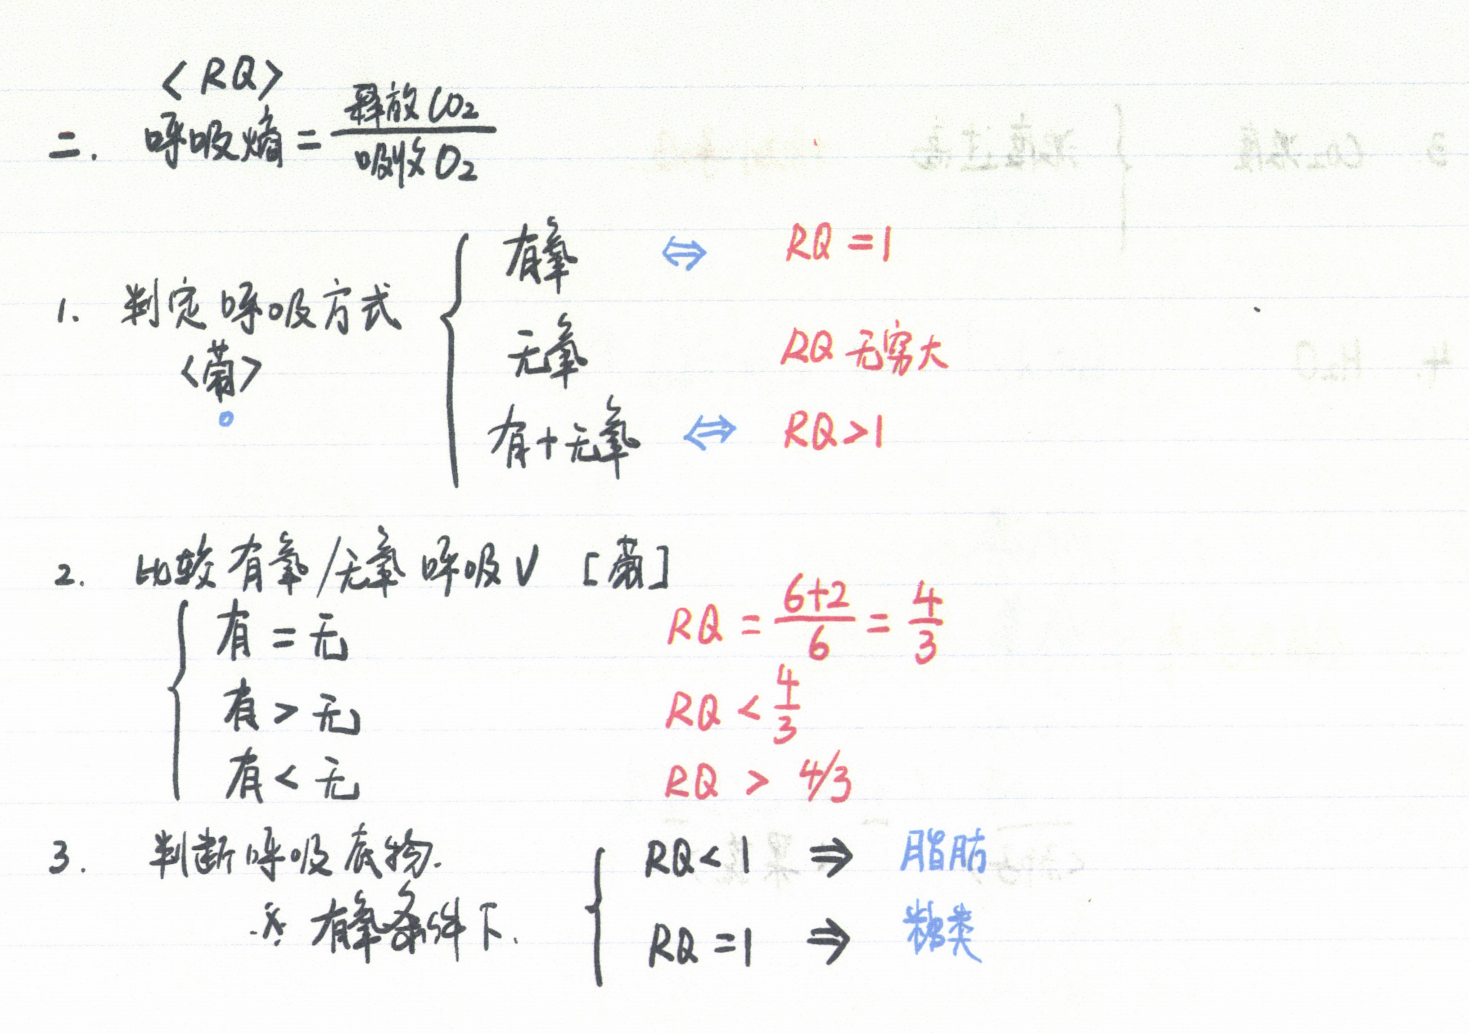 <RQ>
二. 呼吸熵 = 释放CO₂ / 吸收O₂
1. 判定呼吸方式
<葡>
有氧 ⇔ RQ = 1
无氧 RQ 无穷大
有+无氧 ⇔ RQ > 1
2. 比较有氧/无氧呼吸V [葡]
有 = 无 RQ = 6+2/6 = 4/3
有 > 无 RQ < 4/3
有 < 无 RQ > 4/3
3. 判断呼吸底物.
※ 有氧条件下.
RQ < 1 ⇒ 脂肪
RQ = 1 ⇒ 糖类